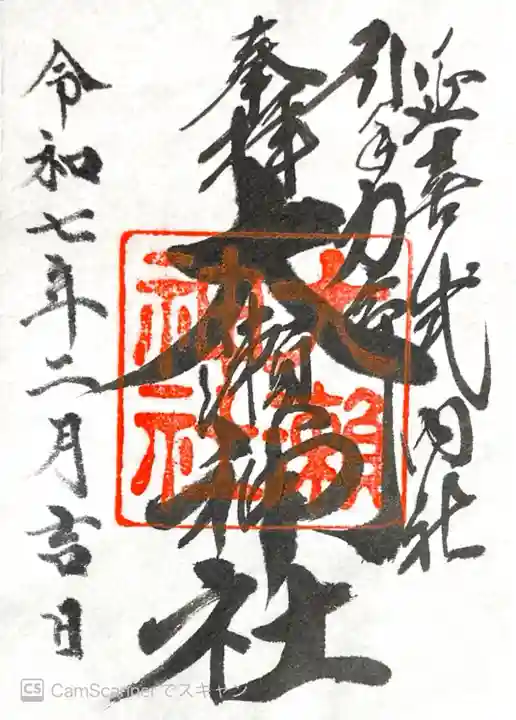 延喜式内社
引手力命
奉拝
大瀬神社
大瀬
神社
令和七年二月吉日
CS CamScannerでスキャン